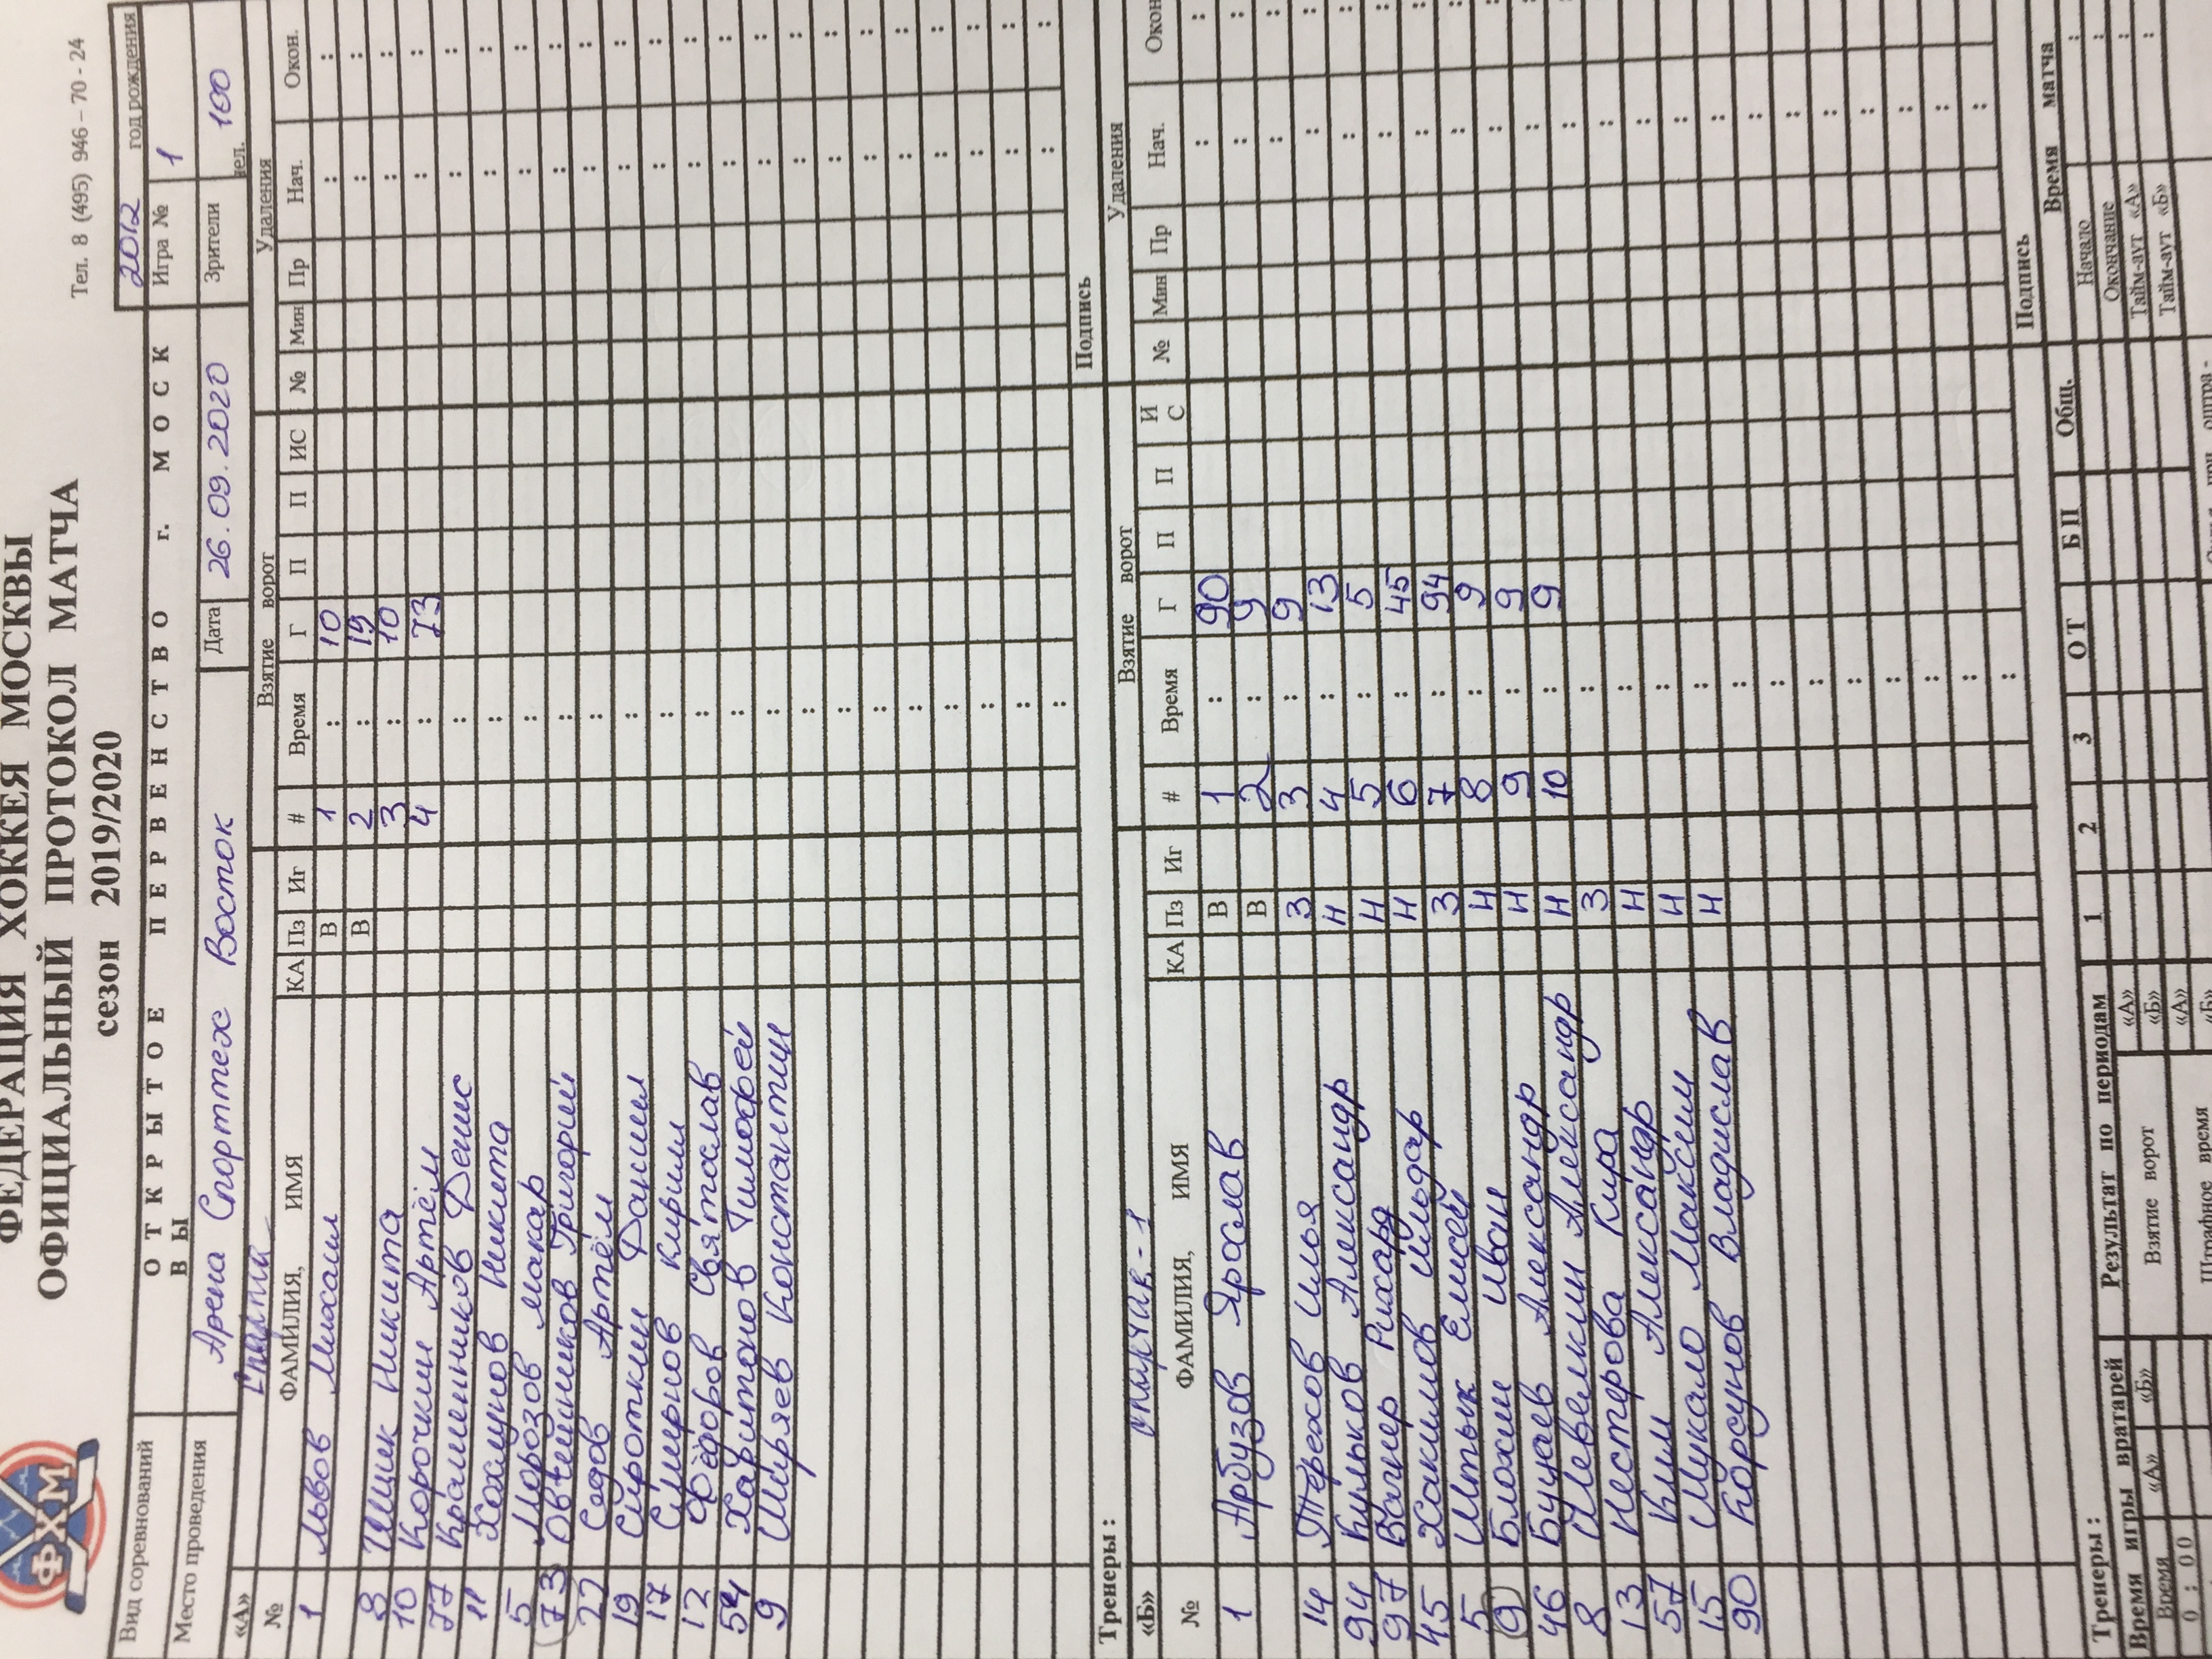 ФЕДЕРАЦИЯ ХОККЕЯ МОСКВЫ
ОФИЦИАЛЬНЫЙ ПРОТОКОЛ МАТЧА
сезон 2019/2020
Тел. 8 (495) 946 – 70 - 24
ФХМ
Вид соревнований ОТКРЫТОЕ ПЕРВЕНСТВО г. МОСКВЫ 2012 год рождения
Игра № 1
Место проведения Арена Спортех Восток Дата 26.09.2020 Зрители 100 чел.
«А» Взятие ворот Удаления
№ ФАМИЛИЯ, ИМЯ КА Пз Иг # Время Г П П ИС № Мин Пр Нач. Окон.
1 Львов Михаил В 1 : 10 : :
В 2 : 19 : :
8 Щищик Никита 3 : 10 : :
10 Корочкин Артём 4 : 73 : :
77 Краменников Денис : : :
11 Хохмунов Никита : : :
5 Морозов Макар : : :
73 Овчинников Григорий : : :
22 Седов Артём : : :
19 Сироткин Даниил : : :
17 Смирнов Кирилл : : :
12 Фёдоров Святослав : : :
54 Харитонов Тимофей : : :
9 Ширяев Константин : : :
Тренеры : Подпись
«Б» Спартак-1 Взятие ворот Удаления
№ ФАМИЛИЯ, ИМЯ КА Пз Иг # Время Г П П ИС № Мин Пр Нач. Окон
1 Арбузов Ярослав В 1 : 90 : :
В 2 : 9 : :
14 Терехов Илья З 3 : 9 : :
94 Кульков Александр Н 4 : 13 : :
97 Вагнер Рихард Н 5 : 5 : :
45 Хакимов Ильдар Н 6 : 45 : :
5 Штык Елисей З 7 : 94 : :
9 Блохин Иван Н 8 : 9 : :
46 Буцаев Александр Н 9 : 9 : :
8 Шевелкин Александр Н 10 : 9 : :
13 Нестерова Кира З : :
57 Ким Александр Н : :
15 Шукало Максим Н : :
90 Корсунов Владислав Н : :
Тренеры : Подпись
Время игры вратарей Результат по периодам 1 2 3 ОТ БП Общ. Время матча
Время «А» «Б» Взятие ворот «А» Начало :
0 : 00 «Б» Окончание :
Штрафное время «А» Тайм-аут «А» :
«Б» Тайм-аут «Б» :